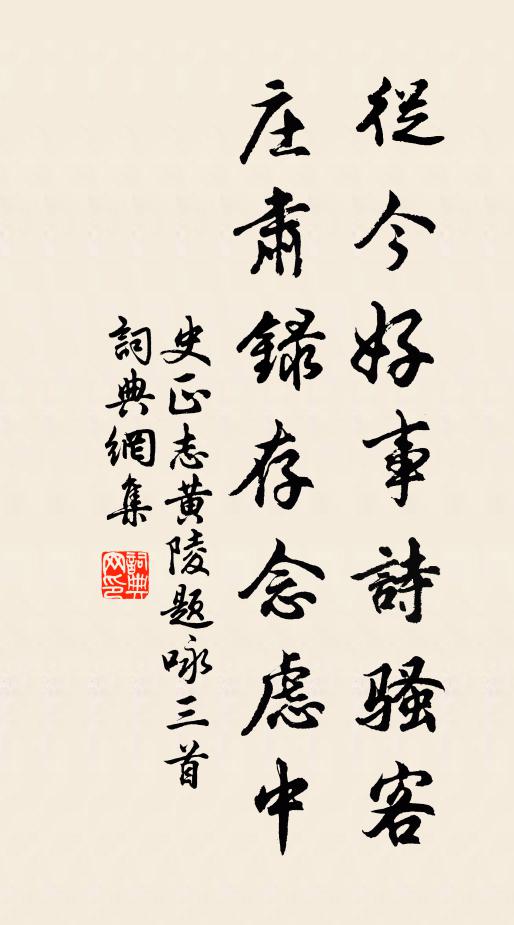 從今好事詩騷客
庄肅錄存念慮中
史正志黄陵题咏三首
詞典網集
詞典网印